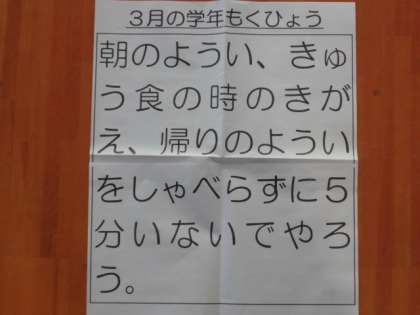 ３月の学年もくひょう
朝のようい、きゅ
う食の時のきが
え、帰りのようい
をしゃべらずに５
分いないでやろ
う。